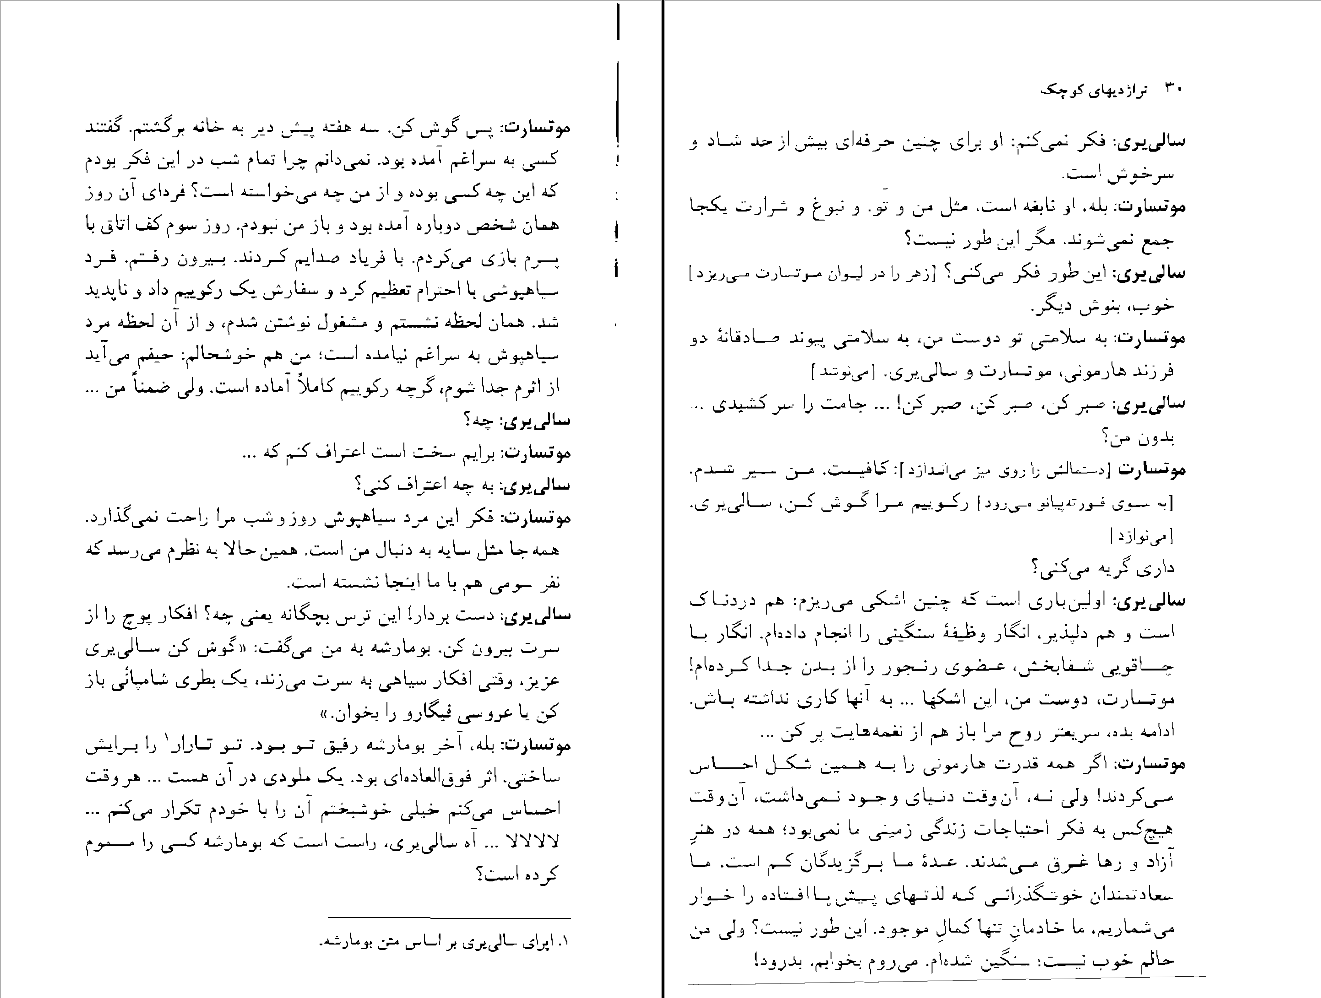 ۳۰ تراژدیهای کوچک
سالی‌یری: فکر نمی‌کنم: او برای چنین حرفه‌ای بیش از حد شاد و
سرخوش است.
موتسارت: بله. او نابغه است، مثل من و تو. و نبوغ و شرارت یکجا
جمع نمی‌شوند. مگر این طور نیست؟
سالی‌یری: این طور فکر می‌کنی؟ [زهر را در لیوان موتسارت می‌ریزد]
خوب، بنوش دیگر.
موتسارت: به سلامتی تو دوست من، به سلامتی پیوند صادقانهٔ دو
فرزند هارمونی، موتسارت و سالی‌یری. [می‌نوشد]
سالی‌یری: صبر کن، صبر کن، صبر کن! ... جامت را سر کشیدی ...
بدون من؟
موتسارت [دستمالش را روی میز می‌اندازد]: کافیست. من سیر شدم.
[به سوی فورته‌پیانو می‌رود] رکوییم مرا گوش کن، سالی‌یری.
[می‌نوازد]
داری گریه می‌کنی؟
سالی‌یری: اولین‌باری است که چنین اشکی می‌ریزم: هم دردناک
است و هم دلپذیر، انگار وظیفهٔ سنگینی را انجام داده‌ام. انگار با
چاقویی شفابخش، عضوی رنجور را از بدن جدا کرده‌ام!
موتسارت، دوست من، این اشکها ... به آنها کاری نداشته باش.
ادامه بده، سریعتر روح مرا باز هم از نغمه‌هایت پر کن ...
موتسارت: اگر همه قدرت هارمونی را به همین شکل احساس
می‌کردند! ولی نه، آن‌وقت دنیای وجود نمی‌داشت، آن‌وقت
هیچ‌کس به فکر احتیاجات زندگی زمینی ما نمی‌بود؛ همه در هنرِ
آزاد و رها غرق می‌شدند. عدهٔ ما برگزیدگان کم است. ما
سعادتمندان خوشگذرانی که لذتهای پیش پا افتاده را خوار
می‌شماریم، ما خادمانِ تنها کمالِ موجود. این طور نیست؟ ولی من
حالم خوب نیست؛ سنگین شده‌ام. می‌روم بخوابم. بدرود!
موتسارت: پس گوش کن. سه هفته پیش دیر به خانه برگشتم. گفتند
کسی به سراغم آمده بود. نمی‌دانم چرا تمام شب در این فکر بودم
که این چه کسی بوده و از من چه می‌خواسته است؟ فردای آن روز
همان شخص دوباره آمده بود و باز من نبودم. روز سوم کف اتاق با
پسرم بازی می‌کردم. با فریاد صدایم کردند. بیرون رفتم. فرد
سیاهپوشی با احترام تعظیم کرد و سفارش یک رکوییم داد و ناپدید
شد. همان لحظه نشستم و مشغول نوشتن شدم، و از آن لحظه مرد
سیاهپوش به سراغم نیامده است؛ من هم خوشحالم: حیفم می‌آید
از اثرم جدا شوم، گرچه رکوییم کاملاً آماده است. ولی ضمناً من ...
سالی‌یری: چه؟
موتسارت: برایم سخت است اعتراف کنم که ...
سالی‌یری: به چه اعتراف کنی؟
موتسارت: فکر این مرد سیاهپوش روز و شب مرا راحت نمی‌گذارد.
همه جا مثل سایه به دنبال من است. همین حالا به نظرم می‌رسد که
نفر سومی هم با ما اینجا نشسته است.
سالی‌یری: دست بردار! این ترس بچگانه یعنی چه؟ افکار پوچ را از
سرت بیرون کن. بومارشه به من می‌گفت: «گوش کن سالی‌یری
عزیز، وقتی افکار سیاهی به سرت می‌زند، یک بطری شامپانی باز
کن یا عروسی فیگارو را بخوان.»
موتسارت: بله، آخر بومارشه رفیق تو بود. تو تارار۱ را برایش
ساختی. اثر فوق‌العاده‌ای بود. یک ملودی در آن هست ... هر وقت
احساس می‌کنم خیلی خوشبختم آن را با خودم تکرار می‌کنم ...
لالالالا ... آه سالی‌یری، راست است که بومارشه کسی را مسموم
کرده است؟
۱. اپرای سالی‌یری بر اساس متن بومارشه.